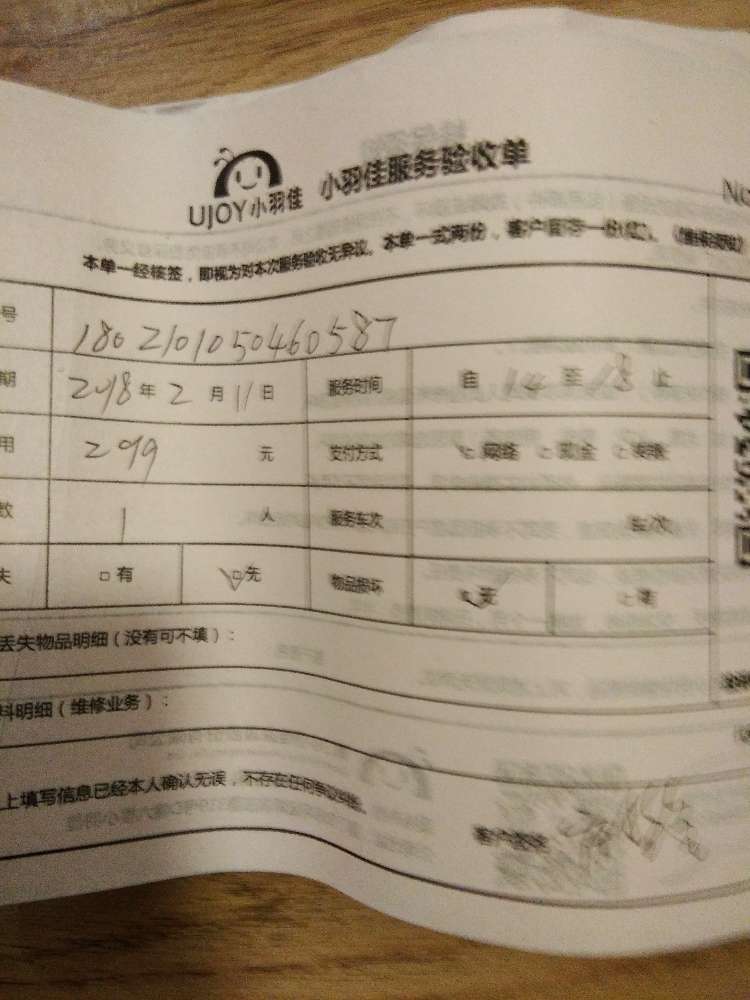 UJOY小羽佳 小羽佳服务验收单
NO
本单一经核签，即视为对本次服务验收无异议。本单一式两份，客户留存一份
号 1802101050460587
期 2018年2月11日 服务时间 自 14 至 18 止
用 299 元 支付方式 网络 现金
数 1 人 服务车次 车/次
失 □有 □无 物品损坏 无 有
丢失物品明细（没有可不填）：
料明细（维修业务）：
上填写信息已经本人确认无误，不存在任何争议
客户签字